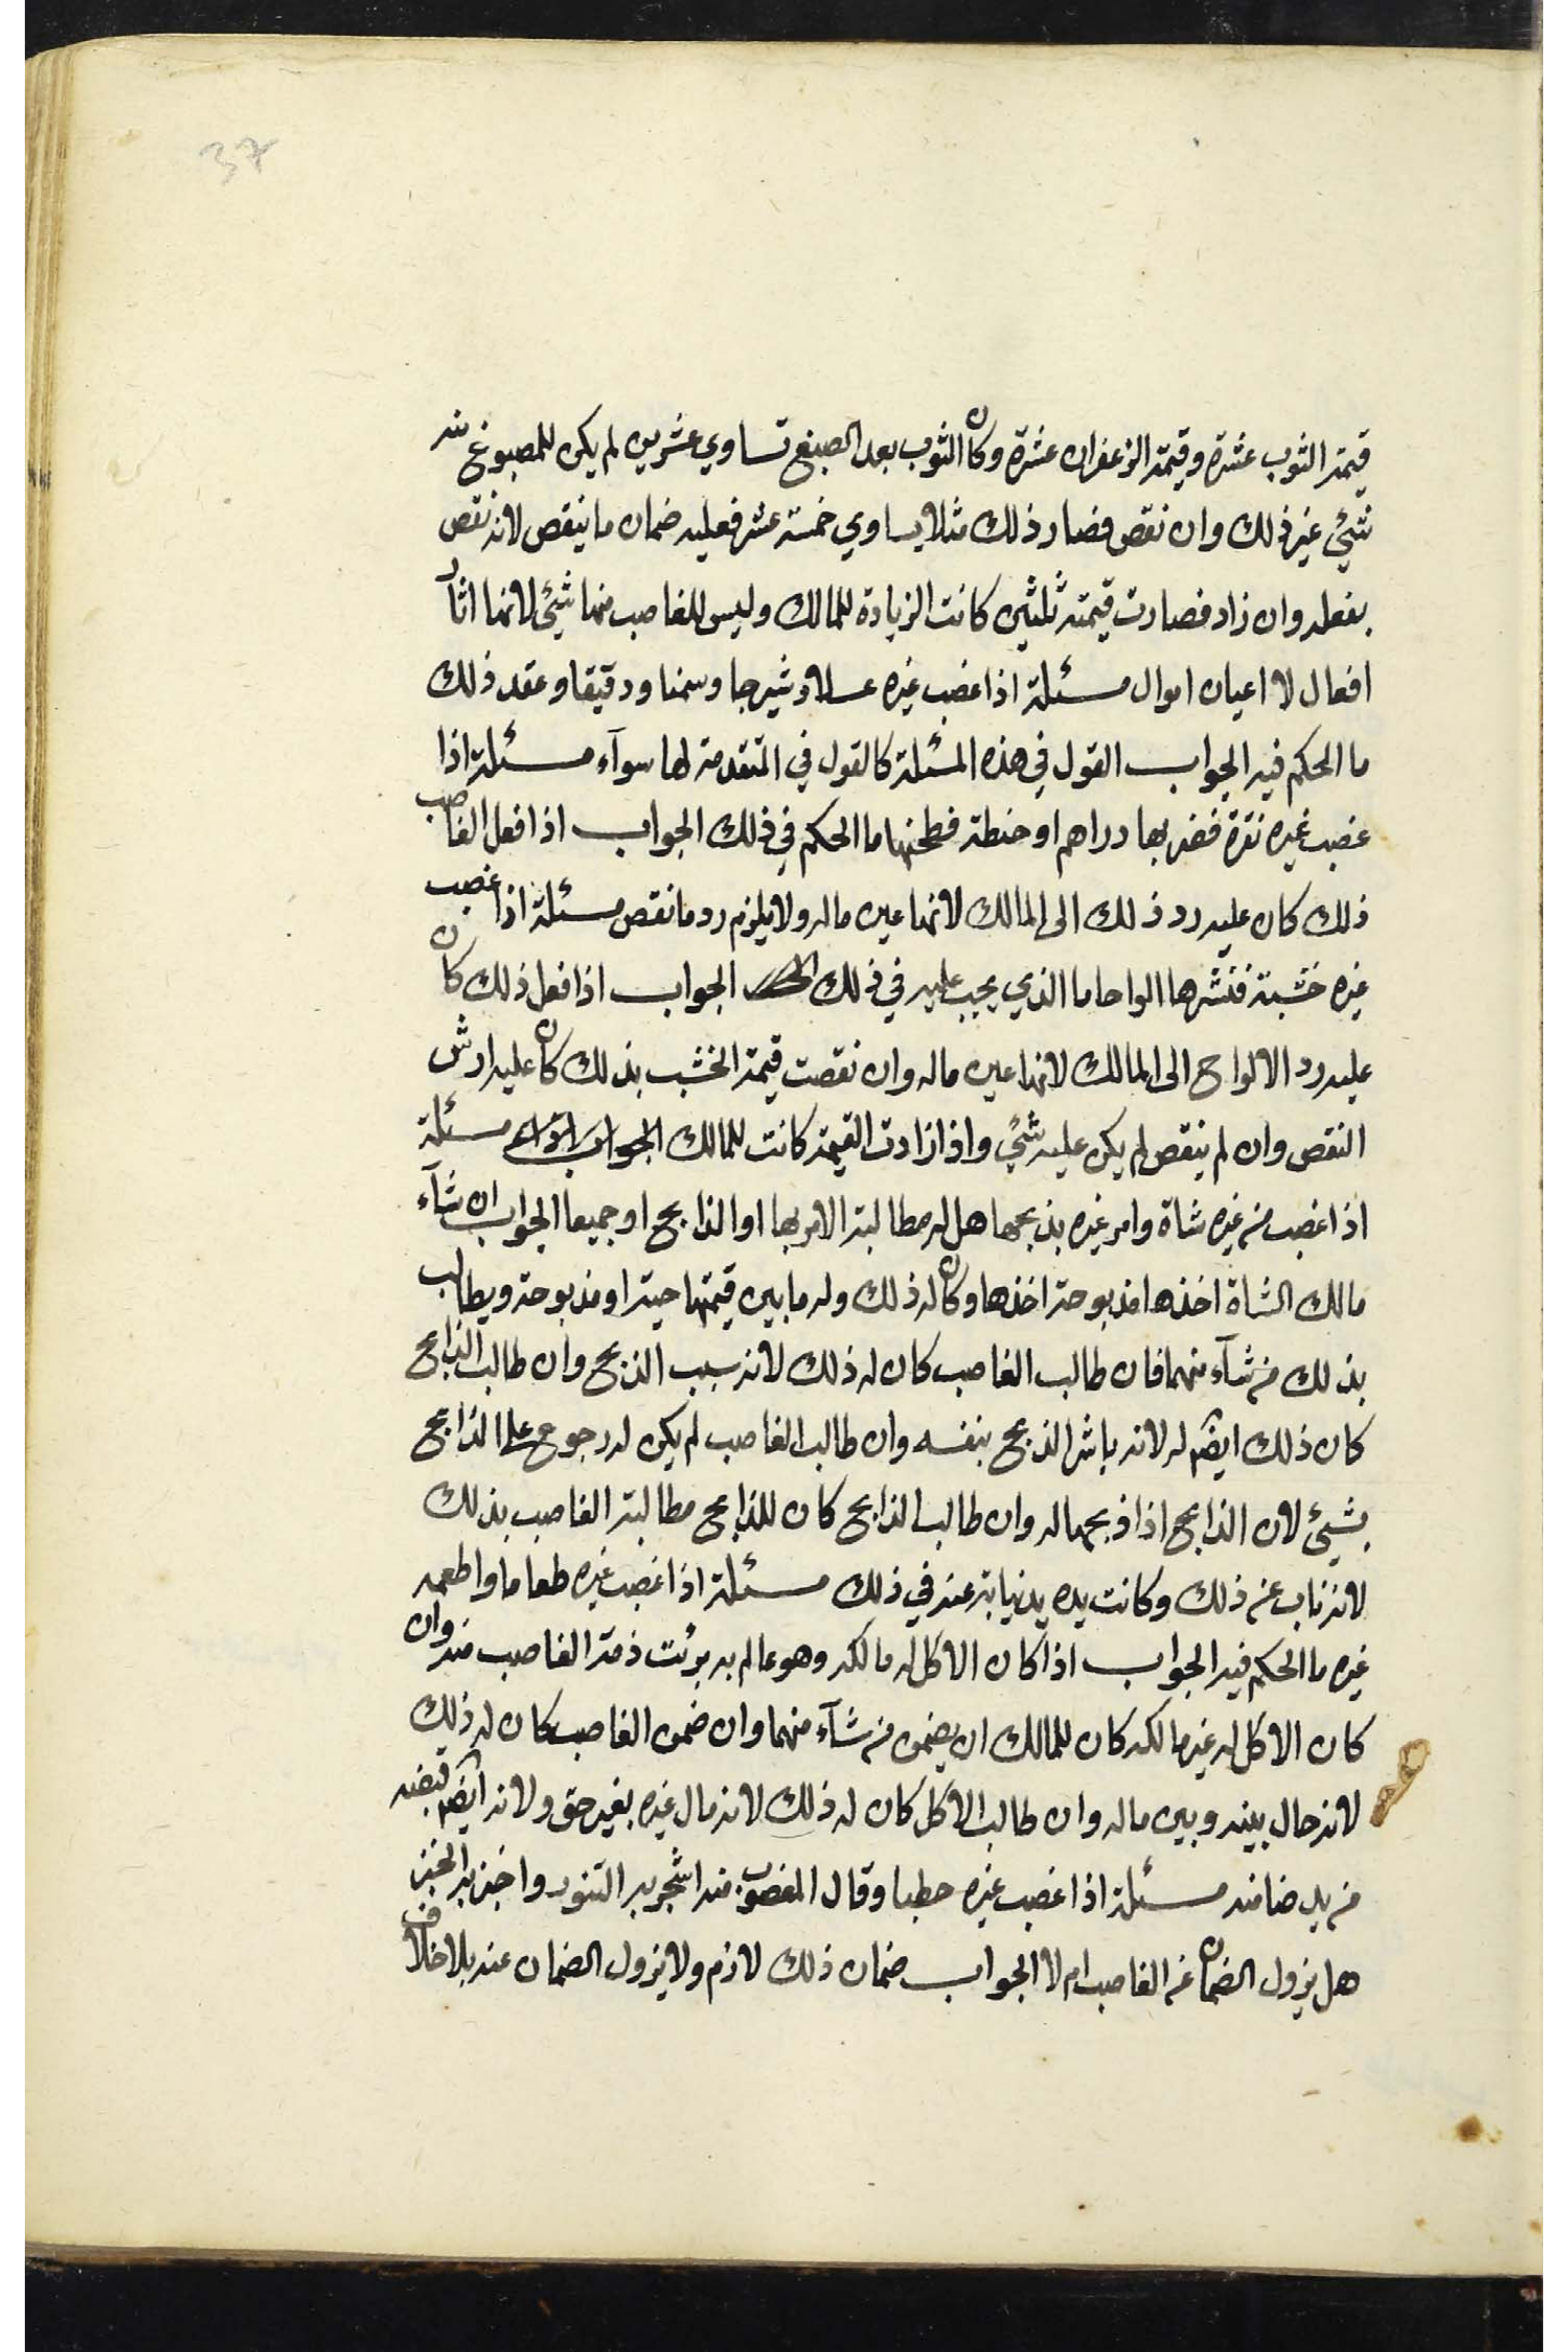 37
قيمة الثوب عشرة وقيمة الزعفران عشرة وكان الثوب بعد الصبغ تساوي عشرين لم يكن للمصبوغ منه
شيئ غير ذلك وان نقص فصار ذلك مثلا يساوي خمسة عشر فعليه ضمان ما ينقص لانه نقص
بفعله وان زاد فصارت قيمته ثلثين كانت الزيادة للمالك وليس للغاصب منها شيئ لانها اثار
افعال لا اعيان اموال مسئلة اذا غصب غيره عسلا وشيرجا وسمنا ودقيقا وعقد ذلك
ما الحكم فيه الجواب القول في هذه المسئلة كالقول في المتقدمة لها سوآء مسئلة اذا
غصب غيره نقرة فضربها دراهم او حنطة فطحنها ما الحكم في ذلك الجواب اذا فعل الغاصب
ذلك كان عليه رد ذلك الى المالك لانها عين ماله ولا يلزم رد ما نقص مسئلة اذا غصب
غيره خشبة فنشرها الواحا ما الذي يجب عليه في ذلك الجواب اذا فعل ذلك كان
عليه رد الالواح الى المالك لانها عين ماله وان نقصت قيمة الخشب بذلك كان عليه ارش
النقص وان لم ينقص لم يكن عليه شيئ واذا زادت القيمة كانت للمالك الجواب اذا مسئلة
اذا غصب من غيره شاة وامر غيره بذبحها هل له مطالبة الامر بها او الذابح او جميعا الجواب ان شآء
مالك الشاة اخذها مذبوحة اخذها وكان له ذلك وله ما بين قيمتها حية او مذبوحة ويطالب
بذلك من شآء منهما فان طالب الغاصب كان له ذلك لانه سبب الذبح وان طالب الذابح
كان ذلك ايضا له لانه باشر الذبح بنفسه وان طالب الغاصب لم يكن له رجوع على الذابح
بشيئ لان الذابح اذا ذبحها له وان طالب الذابح كان للذابح مطالبة الغاصب بذلك
لانه ناب عنه ذلك وكانت يده يد نيابة عنه في ذلك مسئلة اذا غصب غيره طعاما واطعمه
غيره ما الحكم فيه الجواب اذا كان الاكل له مالكه وهو عالم به برئت ذمة الغاصب منه وان
كان الاكل له غير مالكه كان للمالك ان يضمن من شآء منهما وان ضمن الغاصب كان له ذلك
لانه حال بينه وبين ماله وان طالب الاكل كان له ذلك لانه مال غيره بغير حق ولانه ايضا قبضه
من يد ضامنه مسئلة اذا غصب غيره حطبا وقال المغصوب منه اشجر به التنور واخبز به الخبز
هل يزول الضمان عن الغاصب ام لا الجواب ضمان ذلك لازم ولا يزول الضمان عنه بلا خلاف